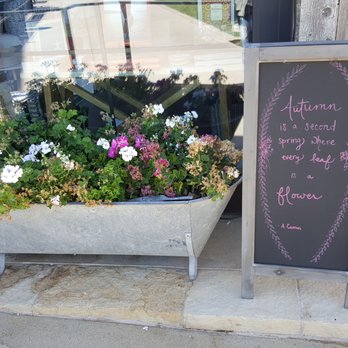 Autumn
is a second
spring where
every leaf
is a
flower
A. Camus